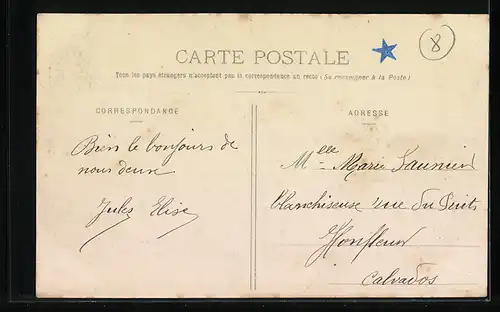 CARTE POSTALE
8
Tous les pays étrangers n'acceptent pas la correspondance au recto (Se renseigner à la Poste)
CORRESPONDANCE
Bien le bonjours de
nous deux
Jules Elise
ADRESSE
Mlle Marie Saunier
Blanchiseuse rue du Puits
Honfleur
Calvados